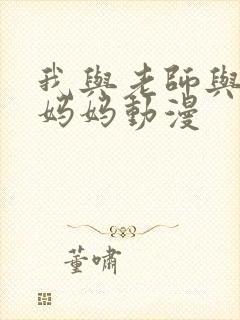 我與老師與
媽媽動漫
董嘯